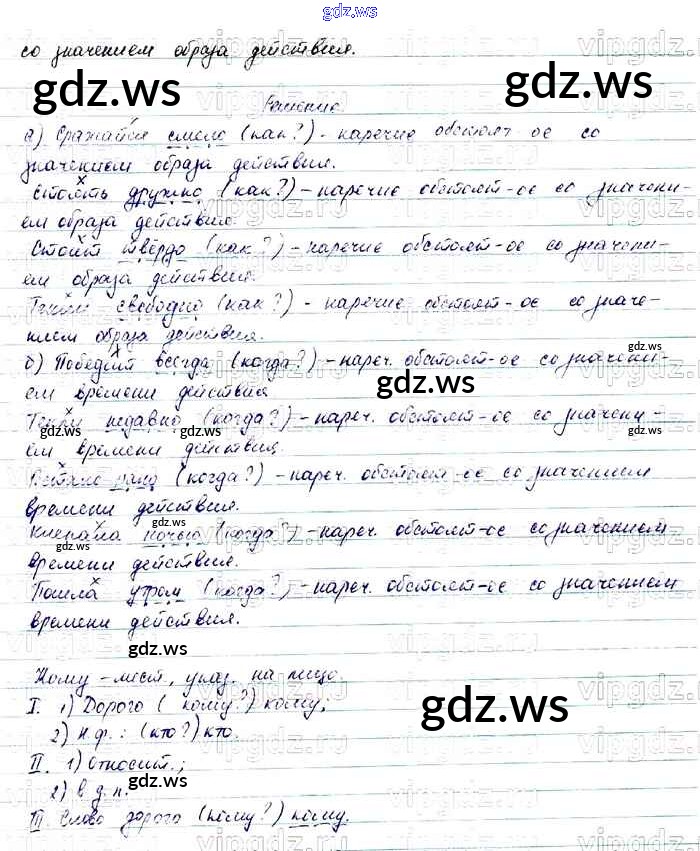 gdz.ws
со значением образа действия.
Решение.
а) Сражайся смело (как?) - наречие обстоят-ое со
значением образа действия.
Стоять дружно (как?) - наречие обстоят-ое со значени-
ем образа действия.
Стоит твёрдо (как?) - наречие обстоят-ое со значени-
ем образа действия.
свободно (как?) - наречие обстоят-ое со значе-
нием образа действия.
б) Победит всегда (когда?) - нареч. обстоят-ое со значени-
ем времени действия
недавно (когда?) - нареч. обстоят-ое со значени-
ем времени действия.
рано (когда?) - нареч. обстоят-ое со значением
времени действия.
ночью (когда?) - нареч. обстоят-ое со значением
времени действия.
Пошла утром (когда?) - нареч. обстоят-ое со значением
времени действия.
Кому - мест., указ. на лицо.
I. 1) Дорого (кому?) кому;
2) Н.ф.: (кто?) кто.
II. 1) Относит.;
2) в д.п.
III. Слово дорого (кому?) кому.